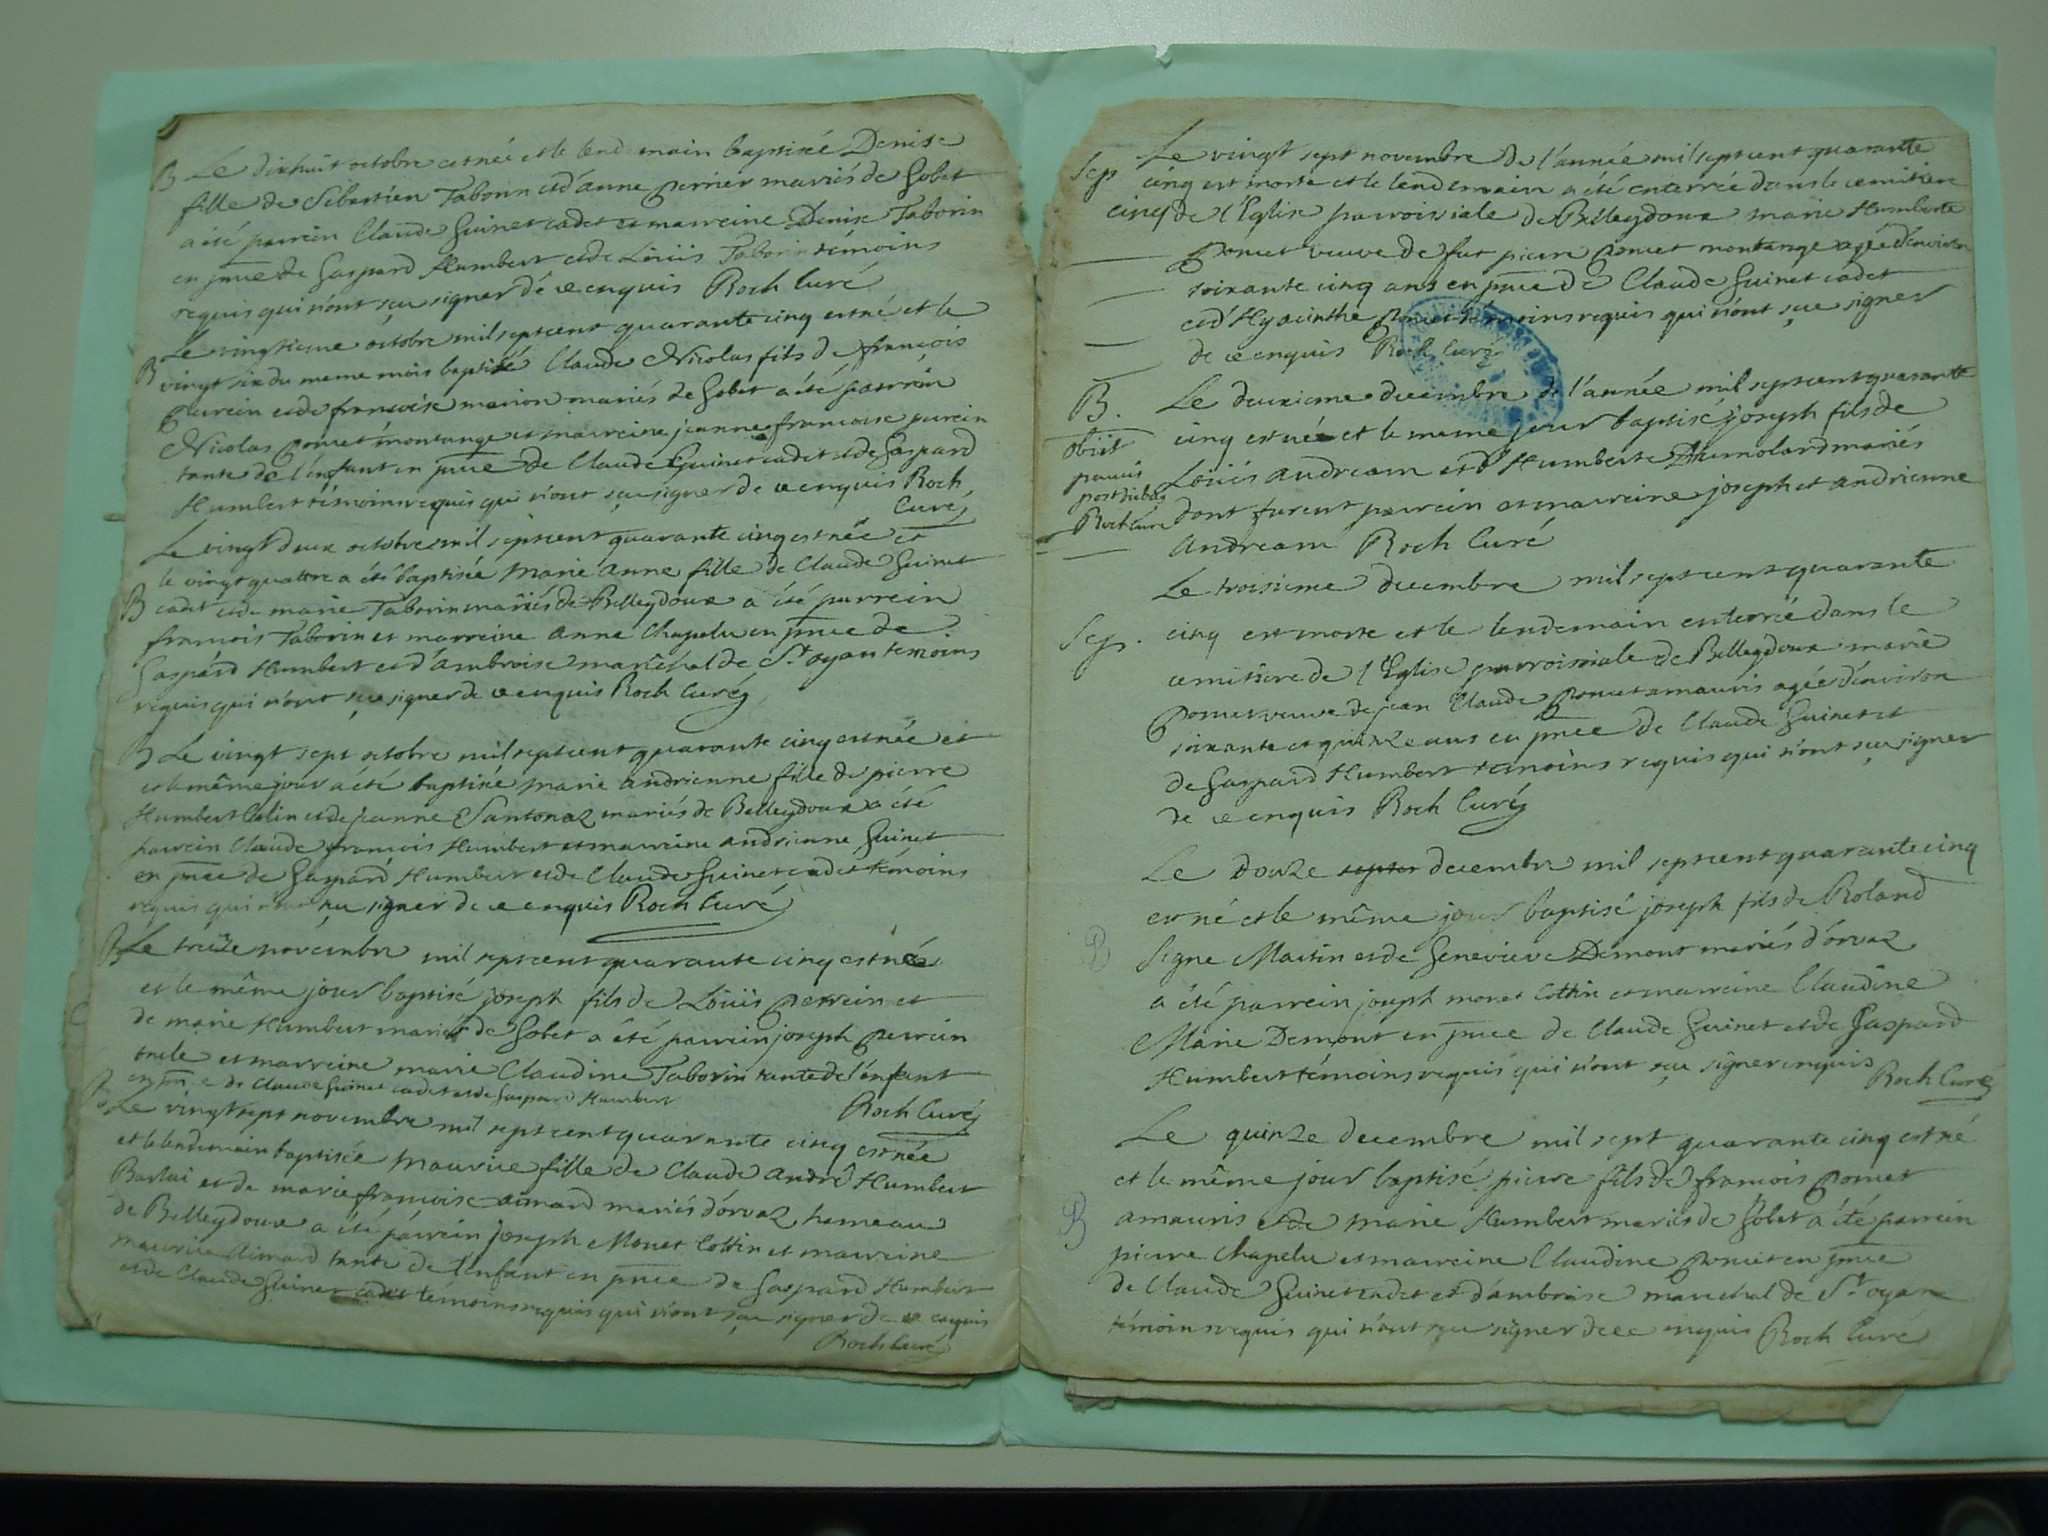 B Le dixhuit octobre est née et le lendemain baptisée Denise
fille de Sébastien Taborin et d'anne perrier mariés de Gobet
a été parrein Claude Guinet cadet et marreine Denise Taborin
en pnce de Gaspard Humbert et de Loüis Taborin témoins
requis qui n'ont sçu signer de ce enquis Roch Curé
Le vingtieme octobre mil sept cent quarante cinq est né et le
B vingt six du meme mois baptisé Claude Nicolas fils de françois
purein et de françoise marion mariés de Gobet a été parrein
Nicolas ponet montange et marreine jeanne francoise purein
tante de l'enfant en pnce de Claude Guinet cadet et de Gaspard
Humbert témoins requis qui n'ont sçu signer de ce enquis Roch
Curé
Le vingt deux octobre mil sept cent quarante cinq est née et
le vingt quattre a été baptisée Marie anne fille de Claude Guinet
B cadet et de marie Taborin mariés de Belleydoux a été parrein
francois Taborin et marreine anne Chapelu en pnce de
Gaspard Humbert et d'ambroise maréchal de St oyan temoins
requis qui n'ont sçu signer de ce enquis Roch Curé
B Le vingt sept octobre mil sept cent quarante cinq est née et
et le même jour a été baptisée Marie andrienne fille de pierre
Humbert Calin et de jeanne Santonaz mariés de Belleydoux a été
parrein Claude francois Humbert et marreine andrienne Guinet
en pnce de Gaspard Humbert et de Claude Guinet cadet témoins
requis qui n'ont sçu signer de ce enquis Roch Curé
B Le treize novembre mil sept cent quarante cinq est né
et le même jour baptisé joseph fils de Loüis perrein et
de marie Humbert mariés de Gobet a été parrein joseph perrein
oncle et marreine marie Claudine Taborin tante de l'enfant
en pnce de Claude Guinet cadet et de Gaspard Humbert
Roch Curé
B Le vingt sept novembre mil sept cent quarante cinq est née
et le lendemain baptisée Maurice fille de Claude André Humbert
Barlui et de marie françoise aimard mariés d'orvaz hameau
de Belleydoux a été parrein joseph Monet Cottin et marreine
maurice aimard tante de l'enfant en pnce de Gaspard Humbert
et de Claude Guinet cadet temoins requis qui n'ont sçu signer de ce enquis
Roch Curé
Sep Le vingt sept novembre de l'année mil sept cent quarante
cinq est morte et le lendemain a été enterrée dans le cemitiere
de l'Eglise parroissiale de Belleydoux marie Humberte
ponet veuve de fut pierre ponet montange agée d'environ
soixante cinq ans en pnce de Claude Guinet cadet
et d'Hyacinthe ponet témoins requis qui n'ont sçu signer
de ce enquis Roch Curé
B. Le deuxieme decembre de l'année mil sept cent quarante
cinq est né et le meme jour baptisé joseph fils de
obiit
Loüis andream et d'Humberte Dumolard mariés
paucis
post diebus
dont furent parrein et marreine joseph et andrienne
Roch Curé
andream Roch Curé
Le troisieme decembre mil sept cent quarante
Sep. cinq est morte et le lendemain enterrée dans le
cemitiere de l'Eglise parroissiale de Belleydoux marie
ponet veuve de jean Claude ponet amauris agée d'environ
soixante et quinze ans en pnce de Claude Guinet et
de Gaspard Humbert temoins requis qui n'ont sçu signer
de ce enquis Roch Curé
Le douze decembre mil sept cent quarante cinq
est né et le même jour baptisé joseph fils de Roland
B Signe Martin et de Genevieve Demont mariés d'orvaz
a été parrein joseph monet Cottin et marreine Claudine
Marie Demont en pnce de Claude Guinet et de Gaspard
Humbert témoins requis qui n'ont sçu signer enquis
Roch Curé
Le quinze decembre mil sept quarante cinq est né
et le même jour baptisé pierre fils de francois ponet
B amauris et de marie Humbert mariés de Gobet a été parrein
pierre Chapelu et marreine Claudine ponet en pnce
de Claude Guinet cadet et d'ambroise marechal de St oyan
témoins requis qui n'ont sçu signer de ce enquis Roch Curé